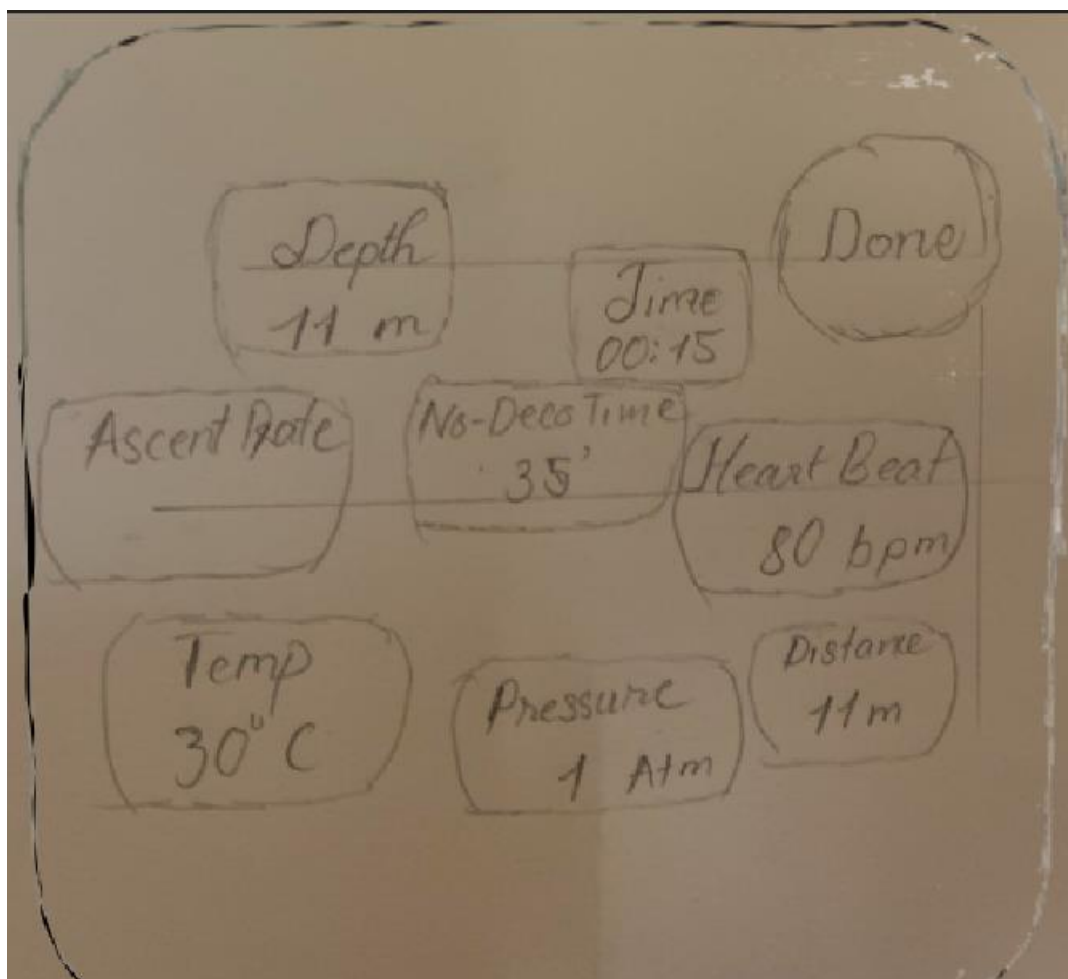 Depth
11 m
Time
00:15
Done
Ascent Rate
No-Deco Time
35'
Heart Beat
80 bpm
Temp
30° C
Pressure
1 Atm
Distance
11m